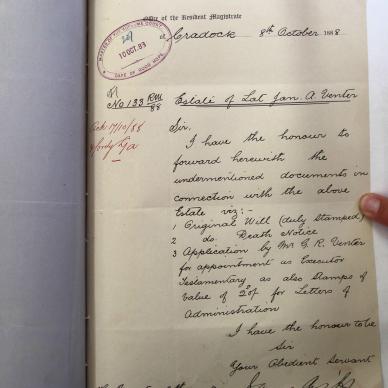 Office of the Resident Magistrate
at Cradock 8th October 1888
MASTER OF THE SUPREME COURT
10 OCT. 88
CAPE OF GOOD HOPE
No 133 RM/88
Estate of Lat Jan. A. Venter
Sir.
I have the honour to
forward herewith the
undermentioned documents in
connection with the above
Estate viz:-
1 Original Will (duly stamped)
2 do. Death Notice
3 Application by Mr G. R. Venter
for appointment as Executor
Testamentary as also Stamps of
value of for Letters of
Administration
I have the honour to be
Sir
Your Obedient Servant